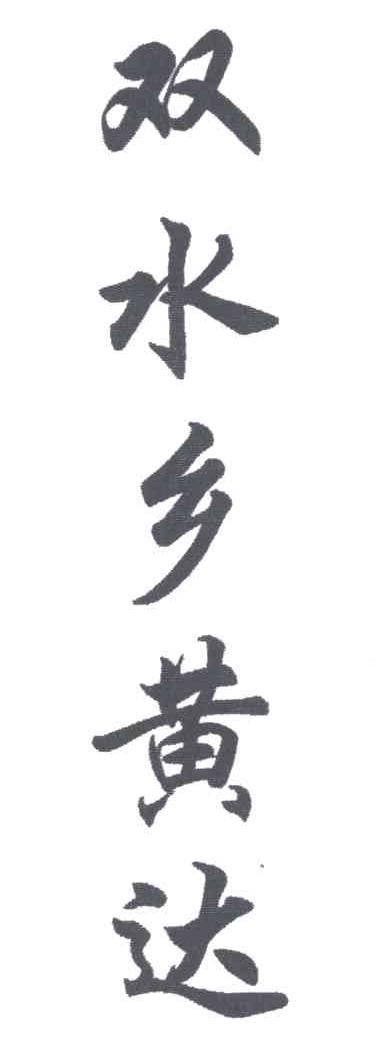 双水乡黄达